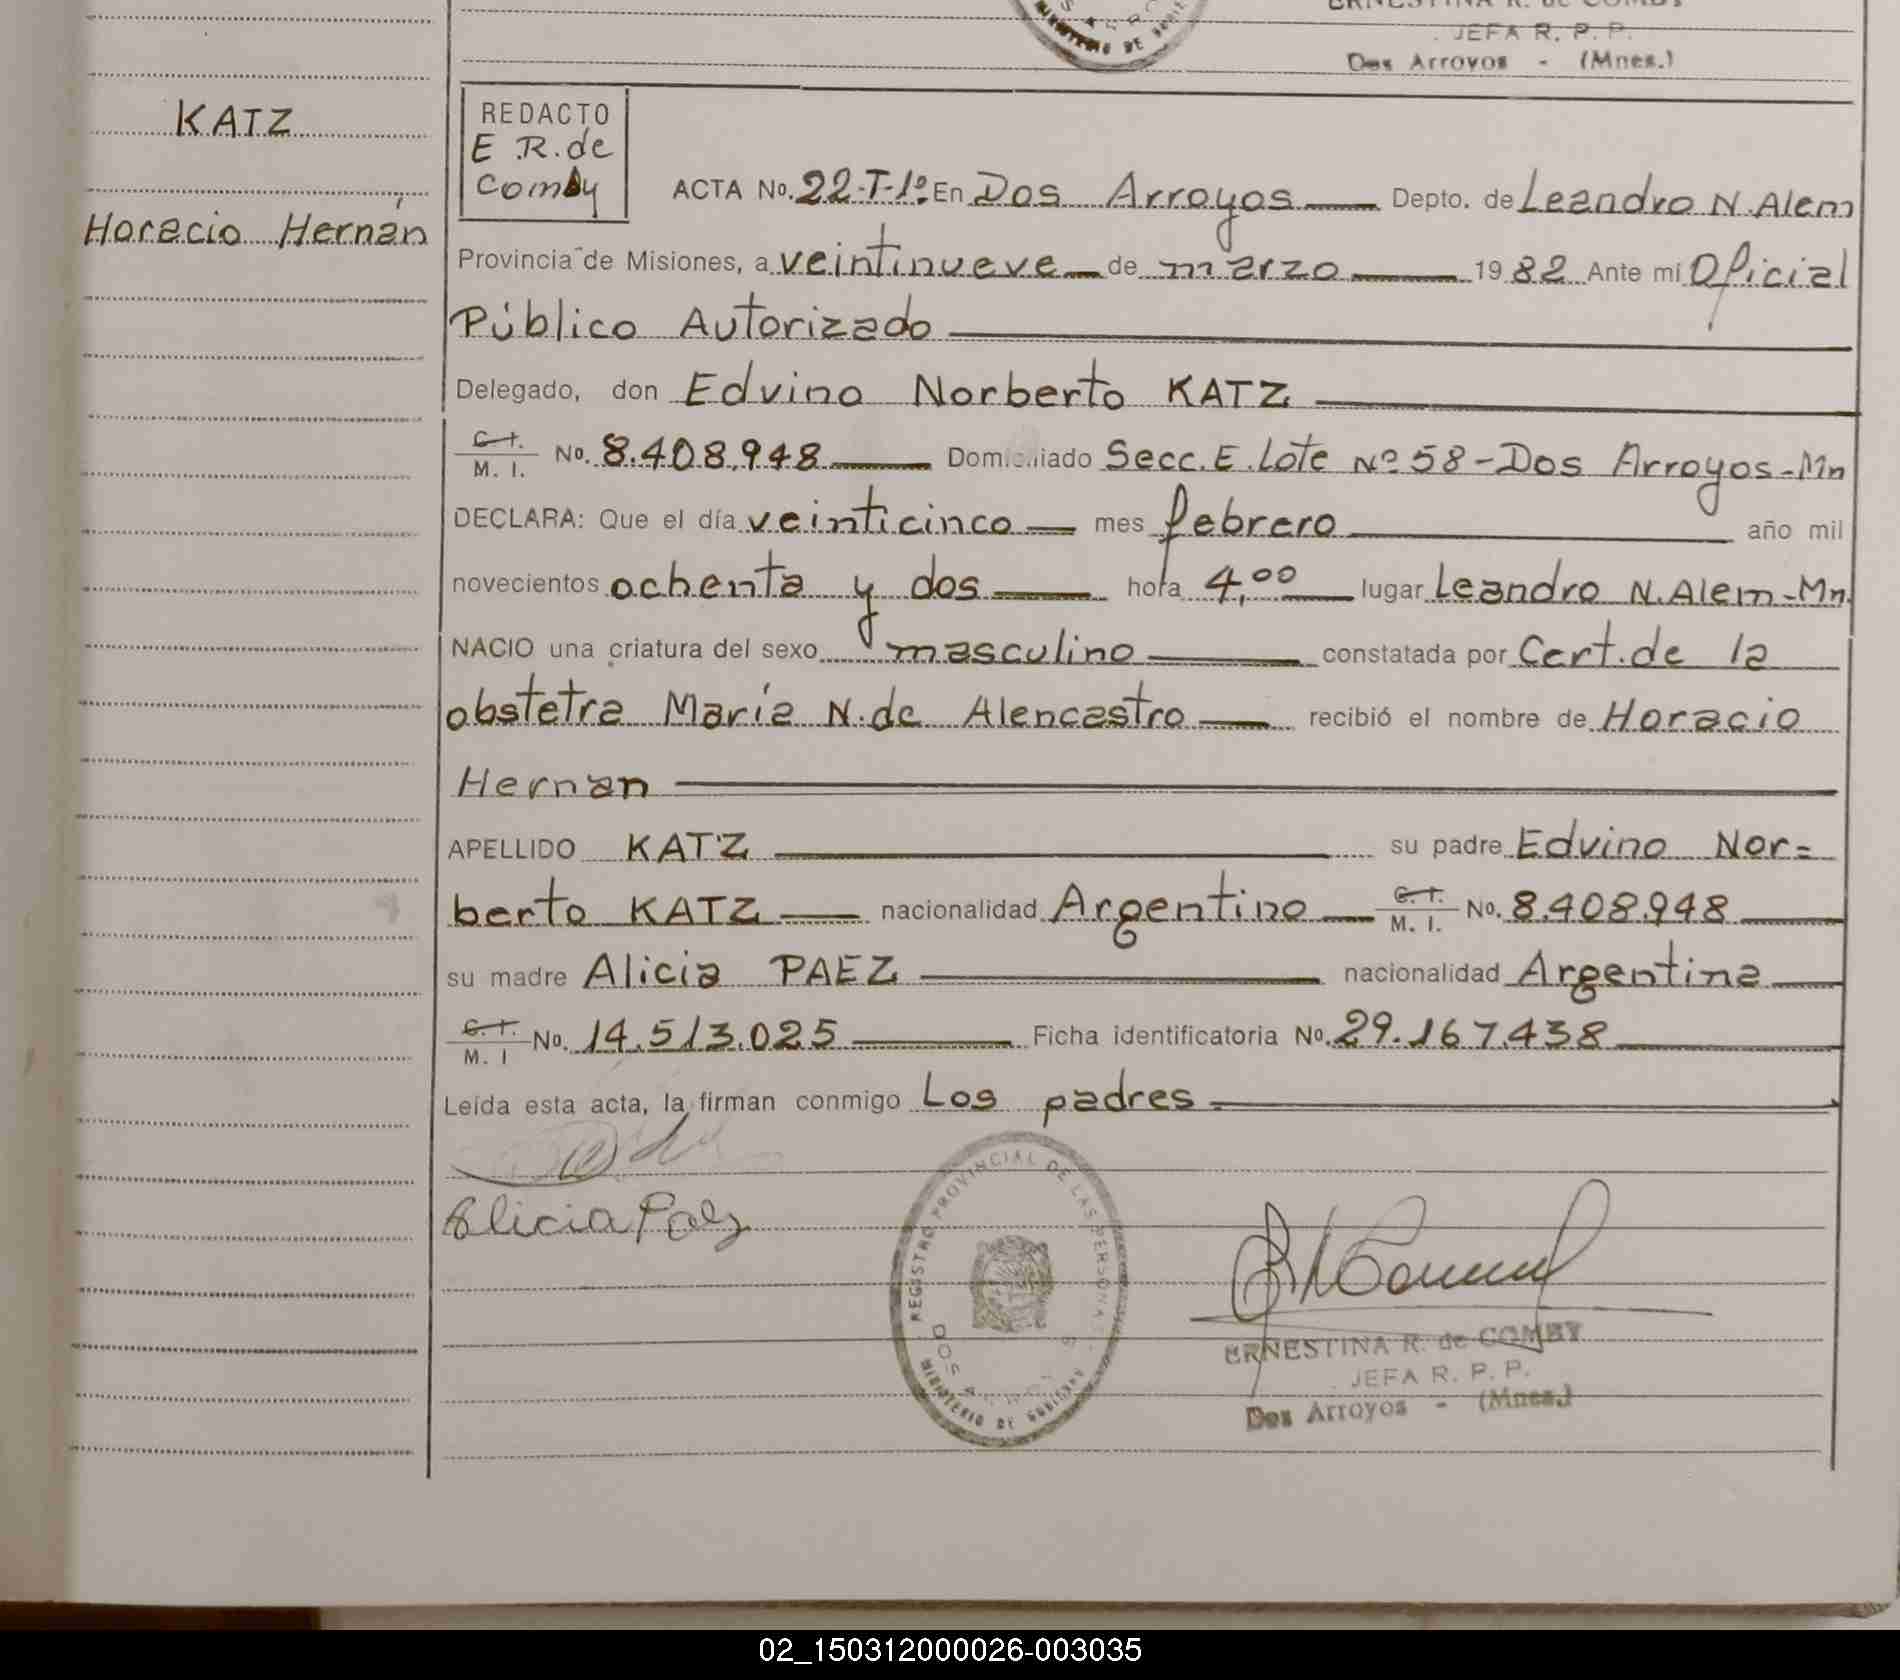 ERNESTINA R. de COMBY
MINISTERIO DE
JEFA R. P. P.
Dos Arroyos - (Mnes.)
KATZ
Horacio Hernán
REDACTO
E.R. de
Comby
ACTA No. 22-T-1º En Dos Arroyos Depto. de Leandro N. Alem
Provincia de Misiones, a veintinueve de marzo 1982 Ante mi Oficial
Público Autorizado
Delegado, don Edvino Norberto KATZ
C. I. M. I. No. 8.408.948 Domiciliado Secc. E. Lote Nº 58 - Dos Arroyos - Mn
DECLARA: Que el día veinticinco mes febrero año mil
novecientos ochenta y dos hora 4,00 lugar Leandro N. Alem - Mn.
NACIO una criatura del sexo masculino constatada por Cert. de la
obstetra María N. de Alencastro recibió el nombre de Horacio
Hernan
APELLIDO KATZ su padre Edvino Nor=
berto KATZ nacionalidad Argentino C. I. M. I. No. 8.408.948
su madre Alicia PAEZ nacionalidad Argentina
C. I. M. I No. 14.513.025 Ficha identificatoria No. 29.167.438
Leída esta acta, la firman conmigo Los padres.
Alicia Paez
REGISTRO PROVINCIAL DE LAS PERSONAS
DOS ARROYOS
MINISTERIO DE GOBIERNO
ERNESTINA R. de COMBY
JEFA R. P. P.
Dos Arroyos - (Mnes.)
02_150312000026-003035